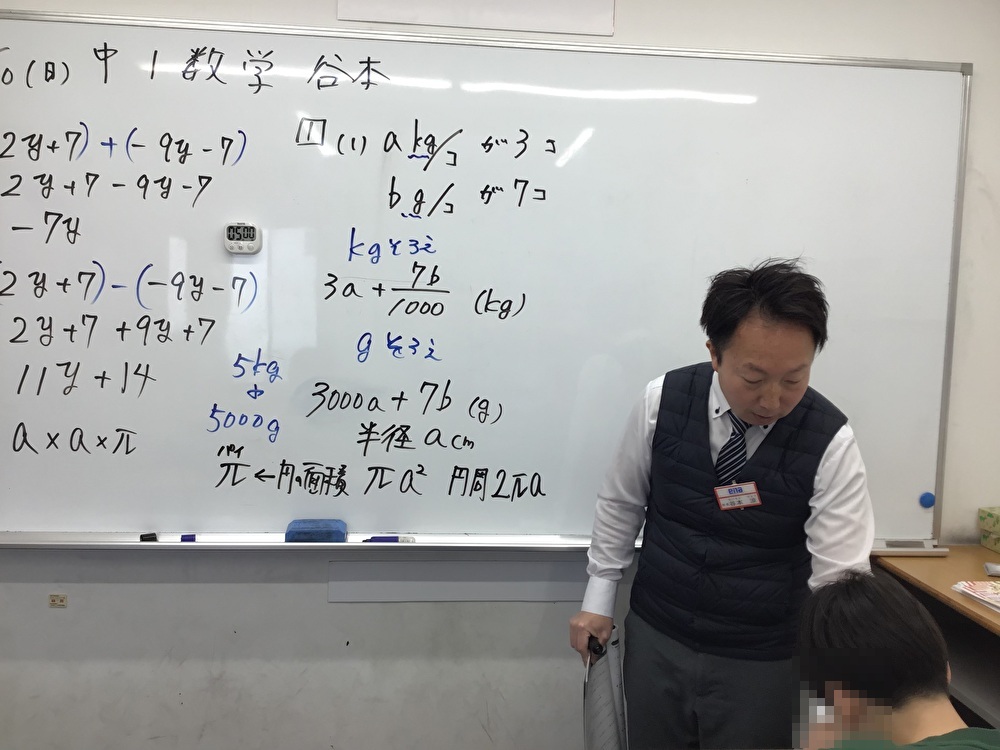 0(日) 中1数学 谷本
2y+7)+(-9y-7)
2y+7-9y-7
-7y
(2y+7)-(-9y-7)
2y+7+9y+7
11y+14
a×a×π
05:00
1 (1) a kg/コ が3コ
b g/コ が7コ
kgそろえ
3a+7b/1000 (kg)
gそろえ
5kg
↓
5000g
3000a+7b (g)
半径 a cm
パイ
π←円の面積 πa² 円周2πa